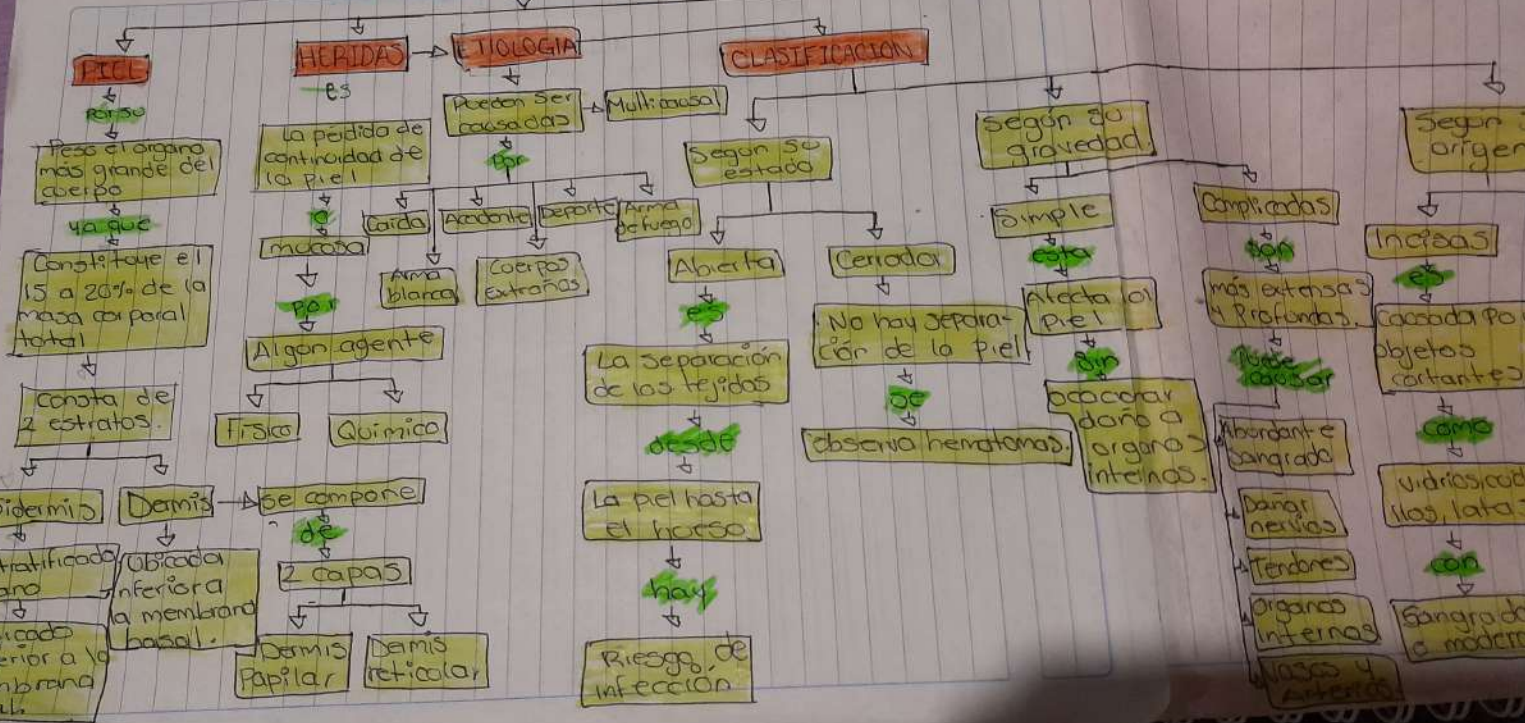 PIEL
Por su
Peso el organo
más grande del
cuerpo
ya que
Constituye el
15 a 20% de la
masa corporal
total
consta de
2 estratos.
idermis
tratificado
ano
icado
erior a la
mbrana
al.
Dermis
Ubicada
inferior a
la membrana
basal.
se compone
de
2 capas
Dermis
Papilar
Dermis
reticular
HERIDAS
es
La perdida de
continuidad de
la piel
o
mucosa
por
Algun agente
Fisico
Quimico
ETIOLOGIA
Pueden ser
causadas
Multicausal
por
Caida
Arma
blanca
Accidente
Cuerpos
extraños
Deporte
Arma
de fuego
CLASIFICACION
Segun su
estado
Abierta
es
La separación
de los tejidos
desde
La piel hasta
el hueso
hay
Riesgo de
infección
Cerrada
No hay separa-
ción de la piel
se
observa hematomas.
Segun su
gravedad.
Simple
esta
Afecta la
piel
sin
ocacionar
daño a
organos
internos.
Complicadas
son
más extensas
y Profundas.
Puede
causar
Abundante
sangrado
Dañar
nervios
Tendones
organos
internos
Vasos y
arterias
Segun
origen
Incisas
es
Causada po
objetos
cortantes
como
vidrios, cuch
illos, latas
con
Sangrado
a modera